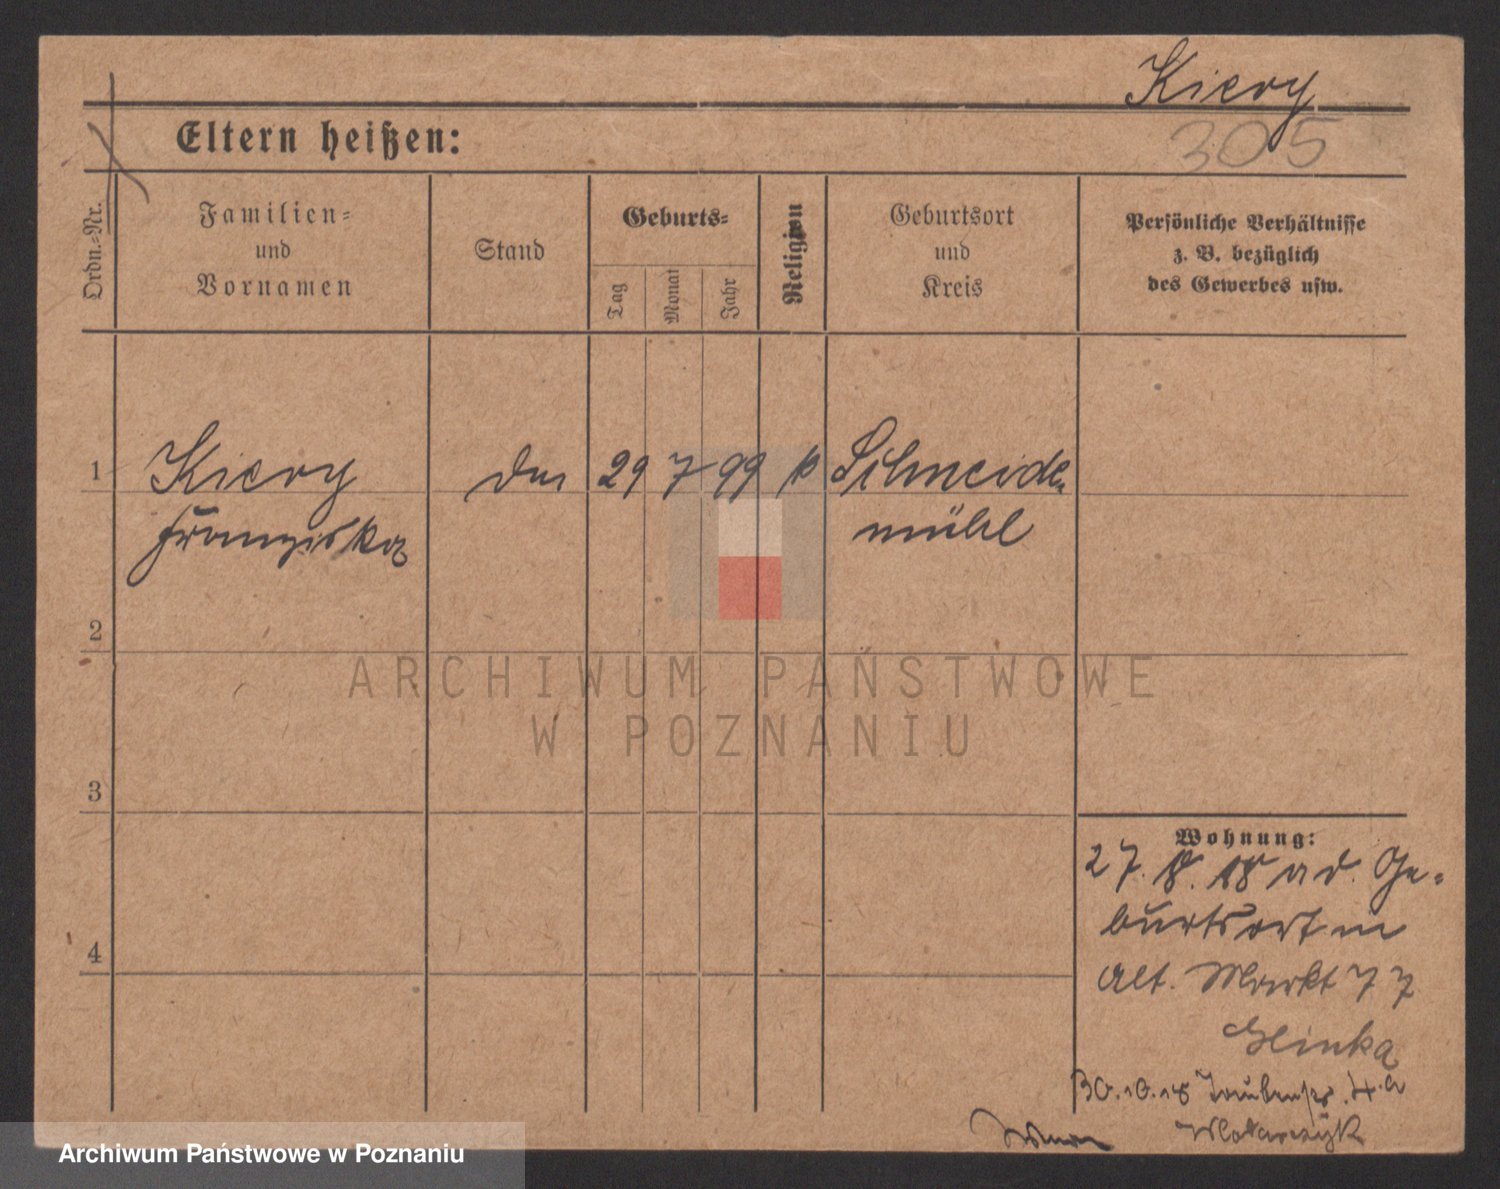 Kicry
305
Eltern heißen:
Ordn.=Nr.
Familien=
und
Vornamen
Stand
Geburts=
Tag
Monat
Jahr
Religion
Geburtsort
und
Kreis
Persönliche Verhältnisse
z. B. bezüglich
des Gewerbes usw.
1 Kicry 29 7 99 k Schneide-
Franziska mühl
2
3
4
Wohnung:
27. 8. 18 a d. Ge-
burtsort in
Alt. Markt 77
Glinka
30.10.18 Taubenstr. 4.a
Wlotarczyk
ARCHIWUM PAŃSTWOWE
W POZNANIU
Archiwum Państwowe w Poznaniu